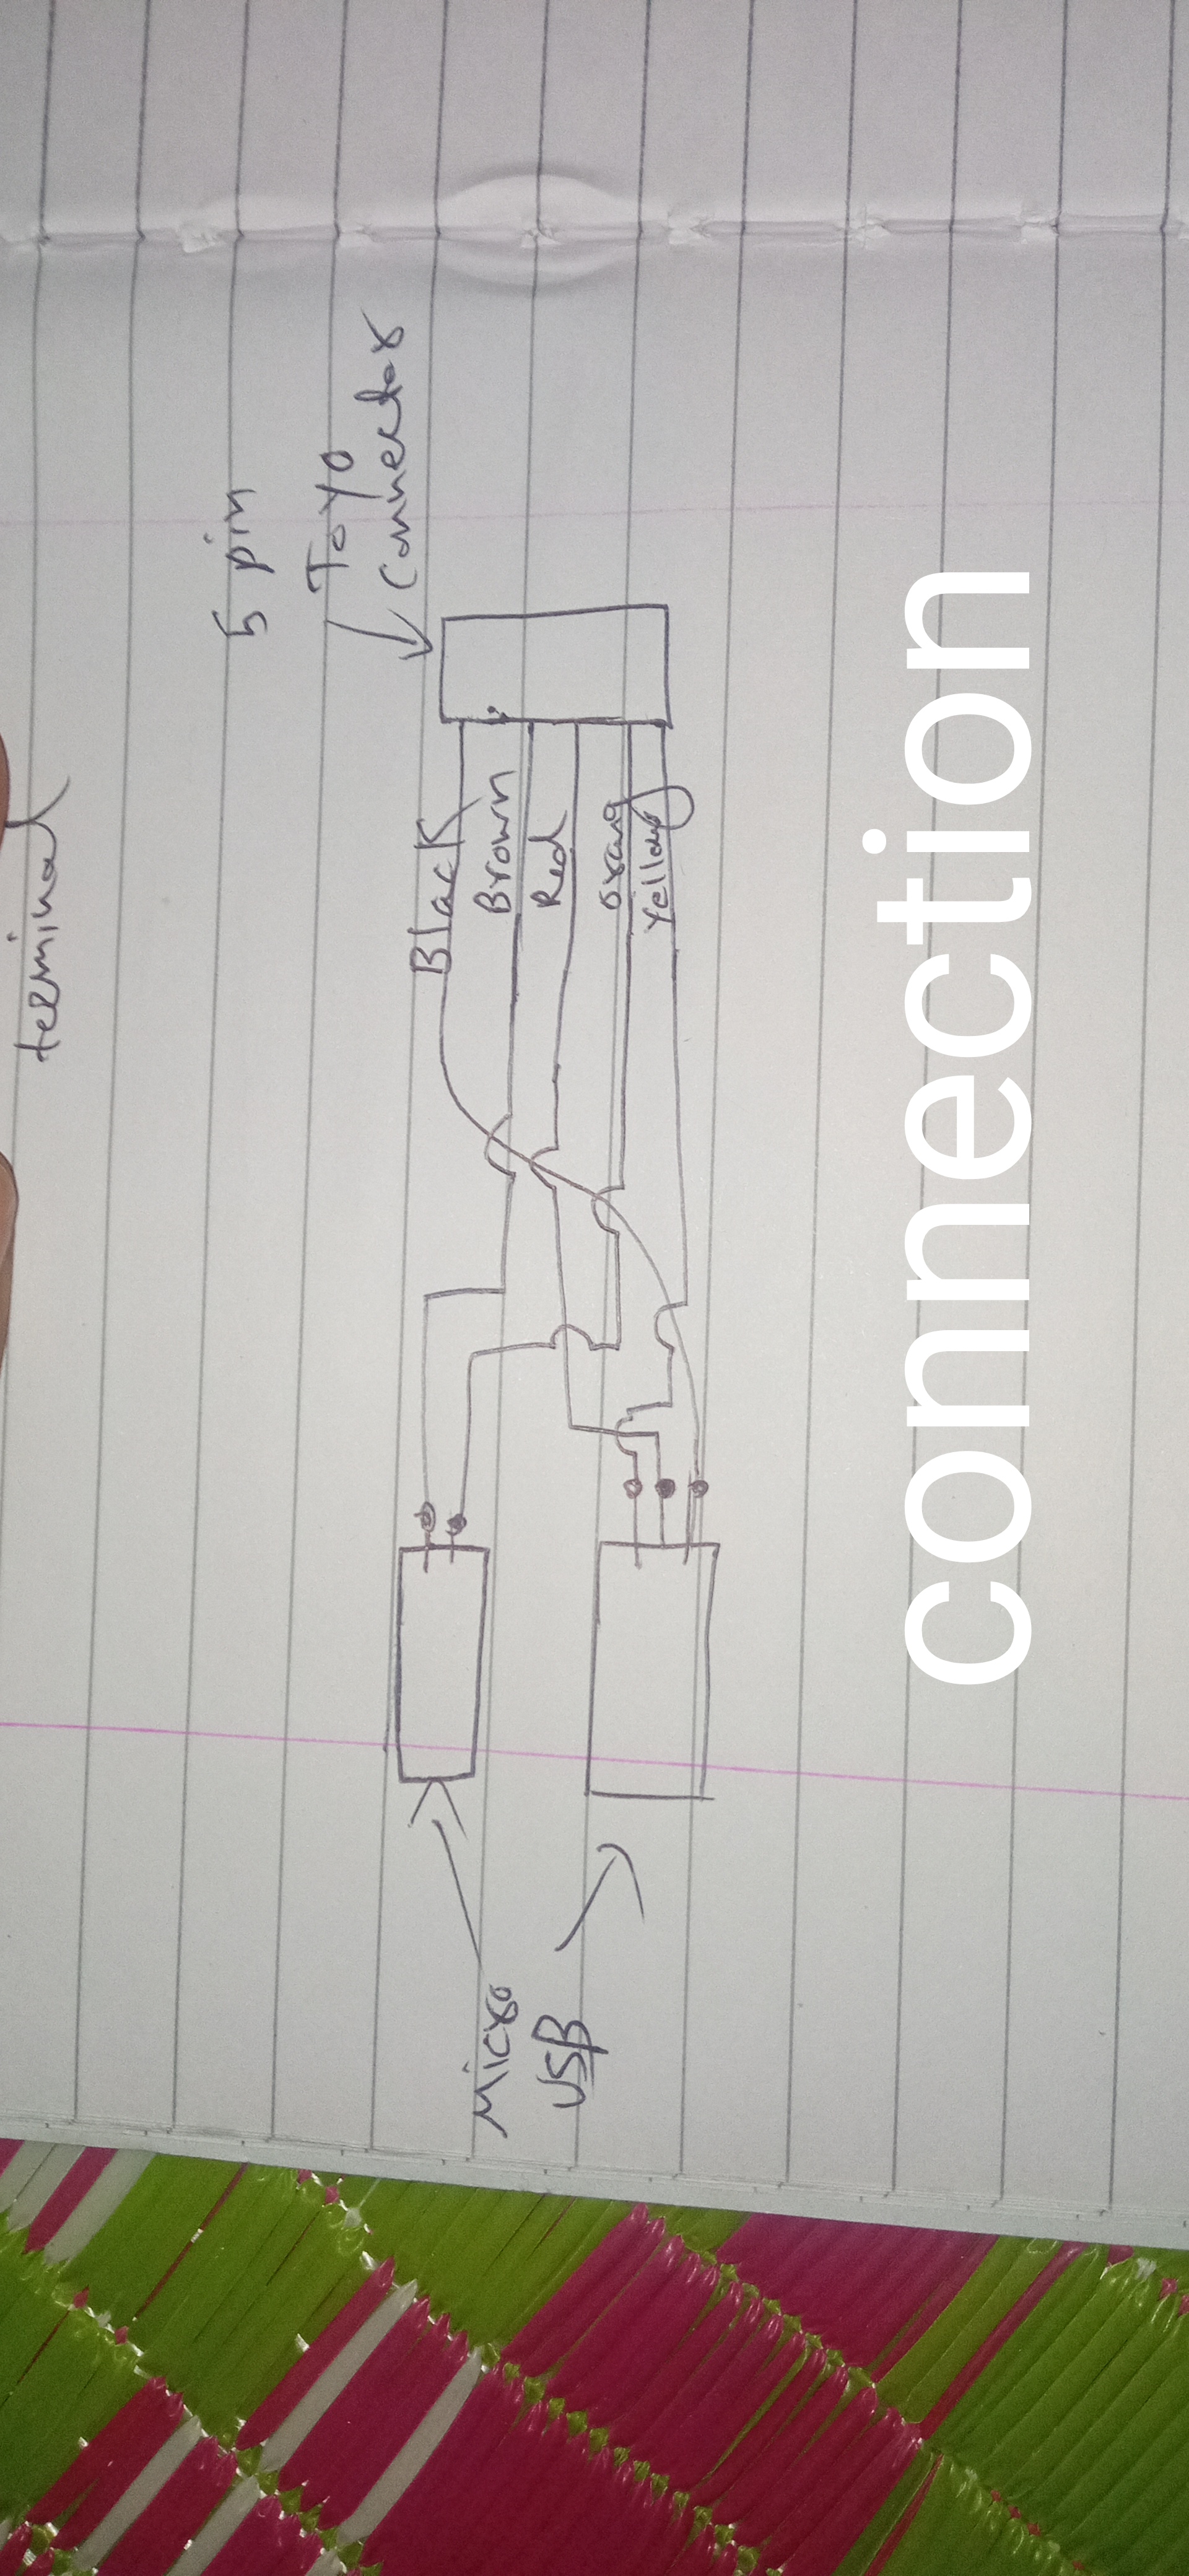 terminal
5 pin
TOYO
Connector
Black
Brown
Red
orang
Yellow
Micro
USB
connection